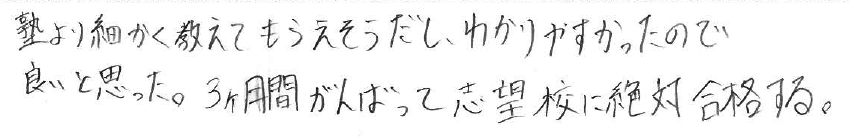 塾より細かく教えてもらえそうだし、わかりやすかったので
良いと思った。3ヶ月間がんばって志望校に絶対合格する。